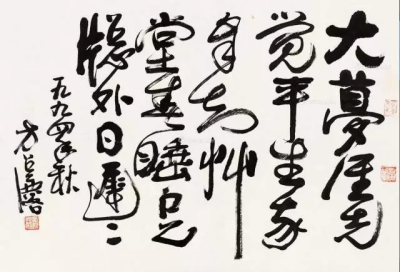 大夢谁先
觉平生我
自知艸
堂春睡足
窗外日遲〻
一九九四年秋
方召麐